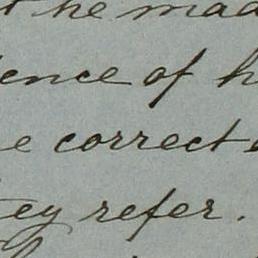 he made
ence of h
e correct
ey refer.